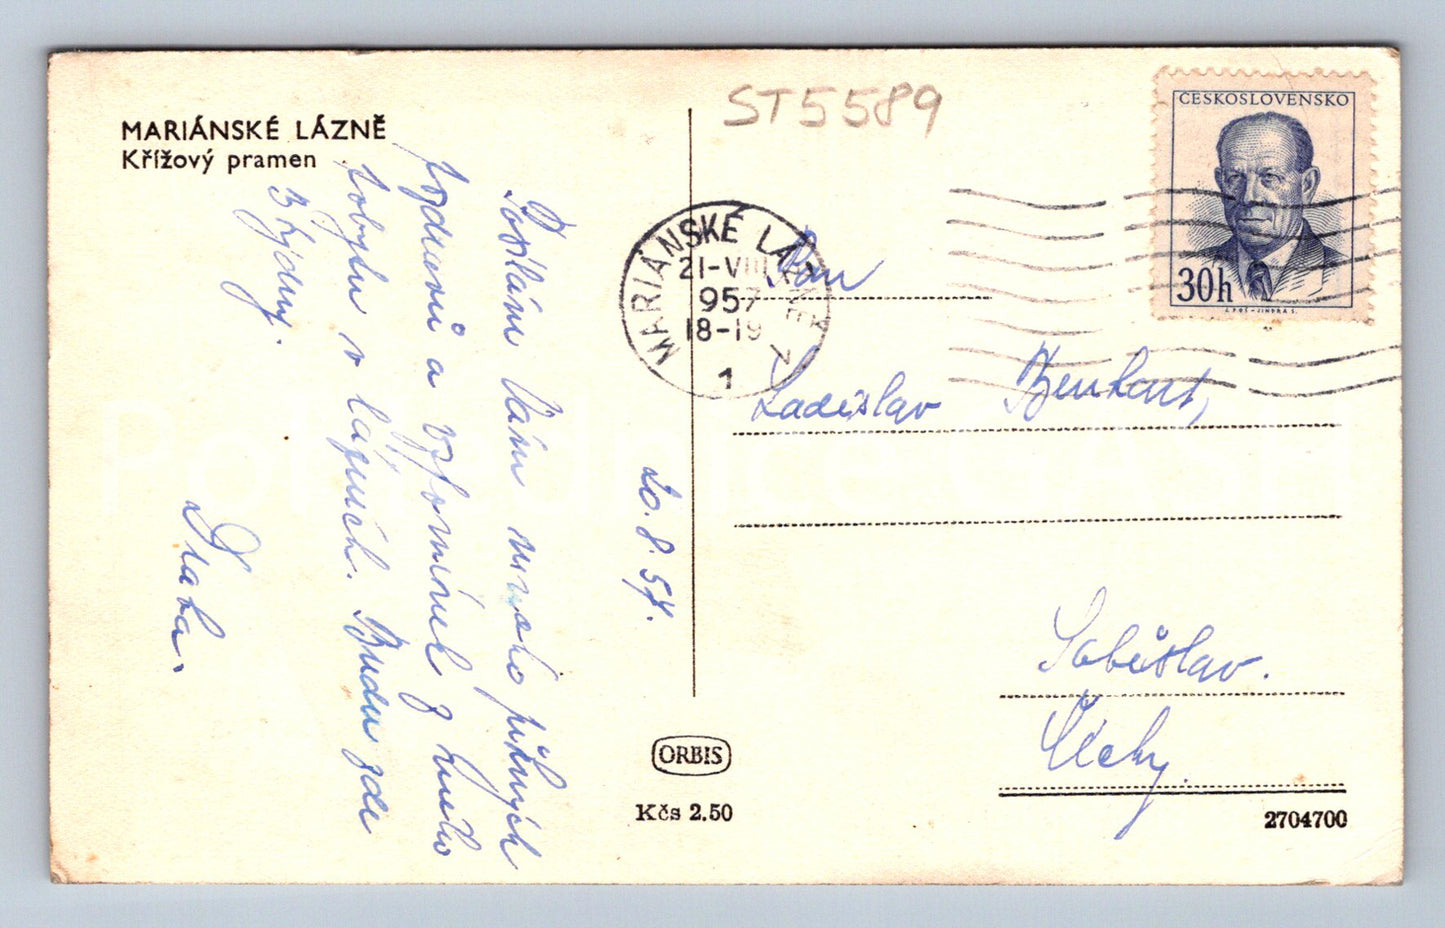 MARIÁNSKÉ LÁZNĚ
Křížový pramen
20.8.57.
Posílám Vám mnoho pěkných
pozdravů a vzpomínek z mého
pobytu v lázních. Budu zde
3 týdny.
Vlaďa.
ST5589
MARIÁNSKÉ LÁZNĚ
21-VIII
957
18-19
1
ČESKOSLOVENSKO
30h
Pan
Ladislav Benhart,
Soběslav.
Čechy.
ORBIS
Kčs 2.50
2704700
Pohlednice GASH